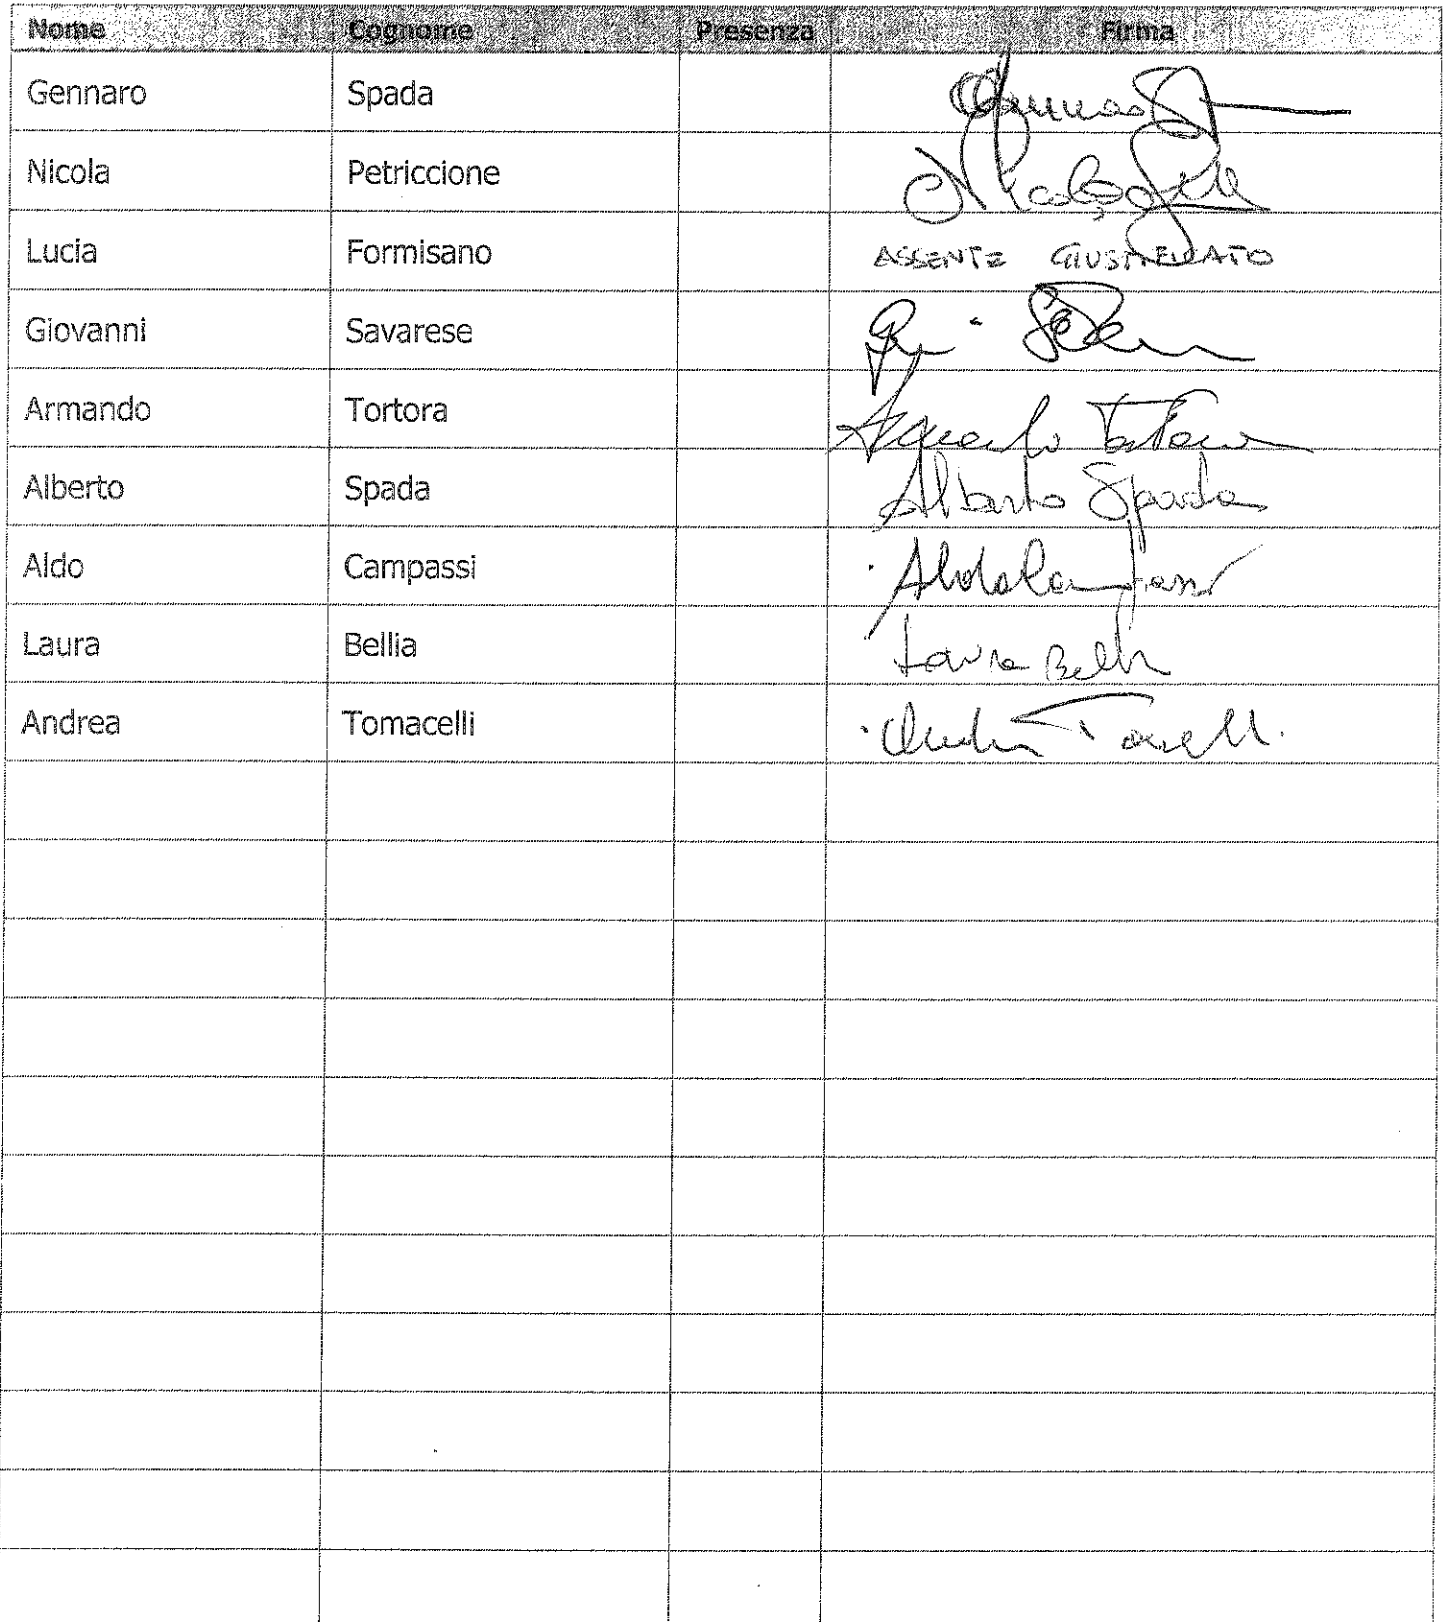 Nome Cognome Presenza Firma
Gennaro Spada
Nicola Petriccione
Lucia Formisano ASSENTE GIUSTIFICATO
Giovanni Savarese
Armando Tortora Armando Tortora
Alberto Spada Alberto Spada
Aldo Campassi Aldo Campassi
Laura Bellia Laura Bellia
Andrea Tomacelli